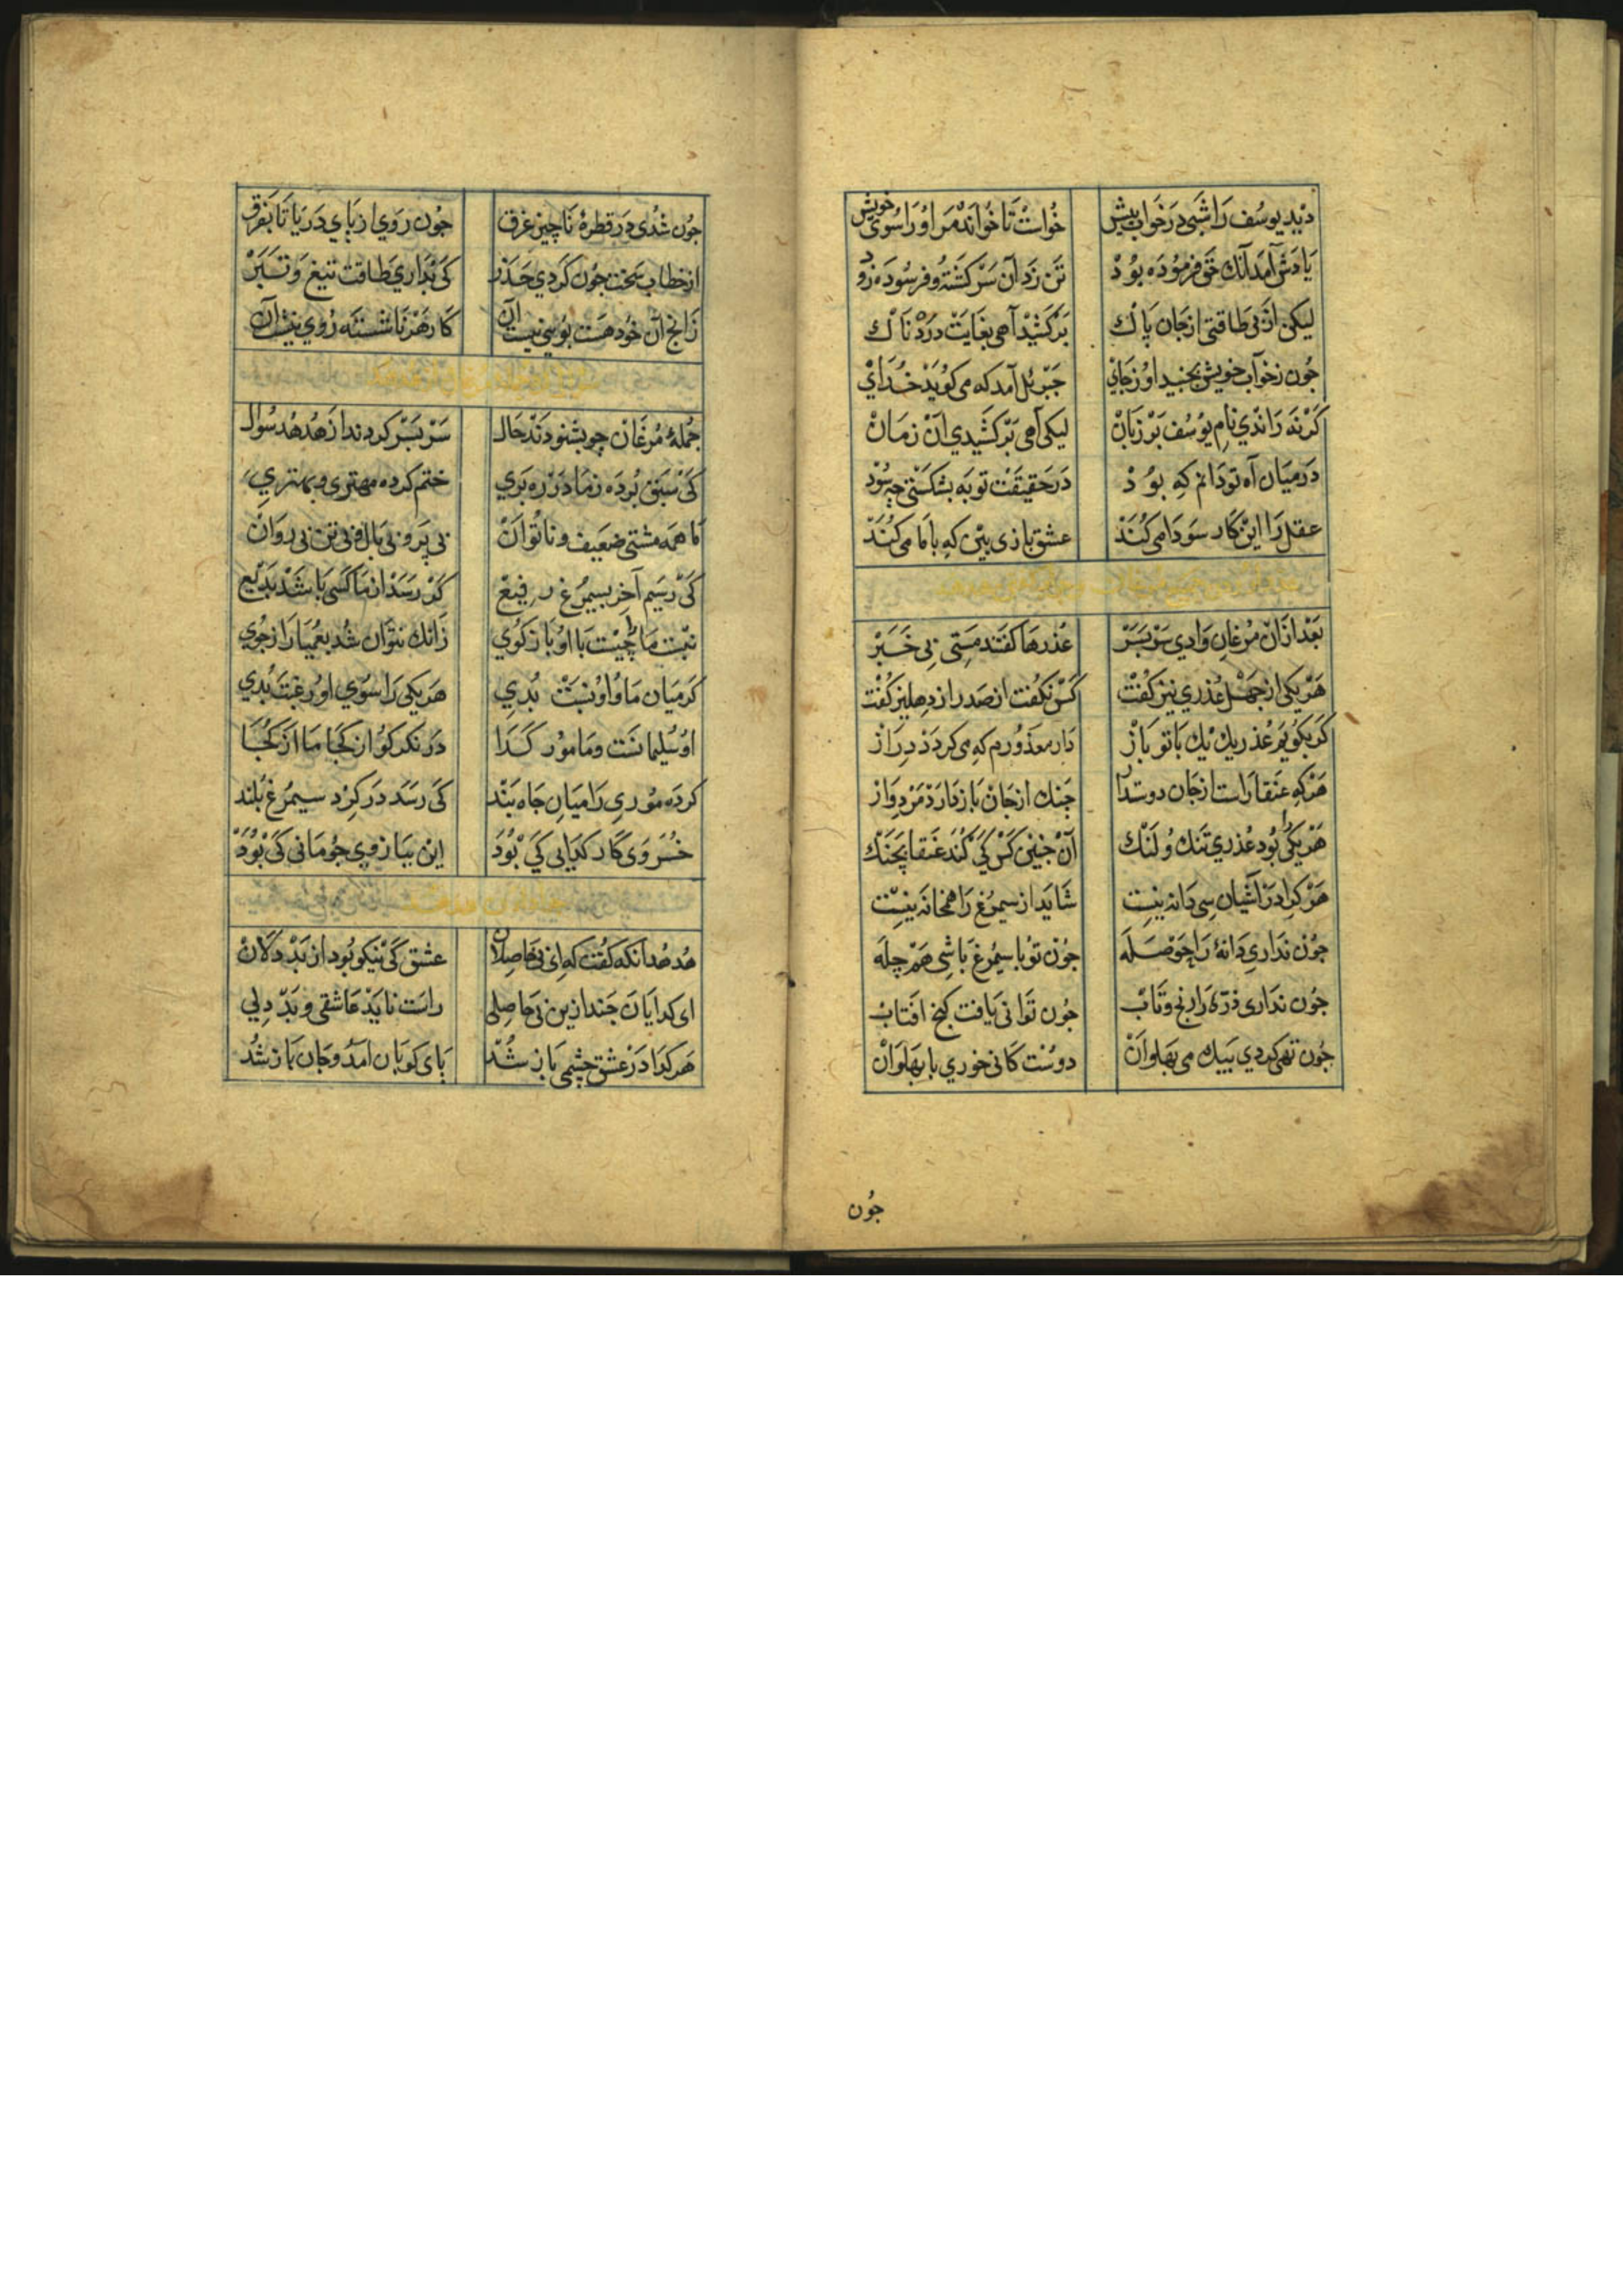 دید یوسف را شبی در خواب پیش خواست تا خواند مر او را سوی خویش
یادش آمد آنك حق فرموده بود تن زد آن سرکشته و فرسوده زود
لیکن از بی طاقتی از جان پاك برکشید آهی بغایت درد ناك
جون زخواب خویش بجنبید او زجای جبرئل آمد که می کوید خدای
کرنه راندی نام یوسف بر زبان لیکی آهی برکشیدی آن زمان
در میان آه تو دانم که بود در حقیقت توبه بشکستی چه سود
عقل را این کار سودا می کند عشق بازی بین که با ما می کند
بعد ازان مرغان وادی سر بسر عذرها کفتند مستی بی خبر
هر یکی از جهل عذری نیز کفت کس نکفت از صدر از دهلیز کفت
کر بکویم عذر یك یك با تو باز دار معذورم که می کردد دراز
هر که عنقا راست از جان دوستدار جنك از جان باز دارد مردوار
هر یکی را بود عذری تنك و لنك آن جنین کس کی کند عنقا بچنك
هر کرا در آشیان سی دانه نیست شاید از سیمرغ را همخانه نیست
جون نداری دانهٔ را حوصله جون تو با سیمرغ باشی هم چله
جون نداری ذرّه را رنج و تاب جون توانی یافت کنج افتاب
جون تهی کردی بیك می بهلوان دوست کانی خوری با بهلوان
جون
جون شدی در قطرهٔ ناچیز غرق جون روی از بای دریا تا بفرق
از خطاب سخت جون کردی حذر کی بداری طاقت تیغ و تبر
زانج آن خود هست بوسی نیست آن کار هر ناشسته روی نیست آن
جملهٔ مرغان چو بشنودند حال سر بسر کردند از هدهد سوال
کی سبق برده زما در ره بری ختم کرده مهتری و بهتری
ما همه مشتی ضعیف و ناتوان بی پر و بی بال و بی تن بی روان
کی رسیم آخر بسیمرغ رفیع کر رسد از ما کسی باشد بدیع
نسبت ما چیست با او باز کوی زانك نتوان شد بعمیا راز جوی
کر میان ما و او نسبت بدی هر یکی را سوی او رغبت بدی
او سلیمانست و ما مور کدا در نکر کو از کجا ما از کجا
کرده موری را میان جاه بند کی رسد در کرد سیمرغ بلند
خسروی کار کدایی کی بود این ببازوی جو مانی کی بود
هدهد آنکه کفت که ای بی حاصلان عشق کی نیکو بود از بد دلان
ای کدایان جند ازین بی حاصلی راست ناید عاشقی و بد دلی
هر کدا در عشق چشمی باز شد بای کوبان امد و جان باز شد